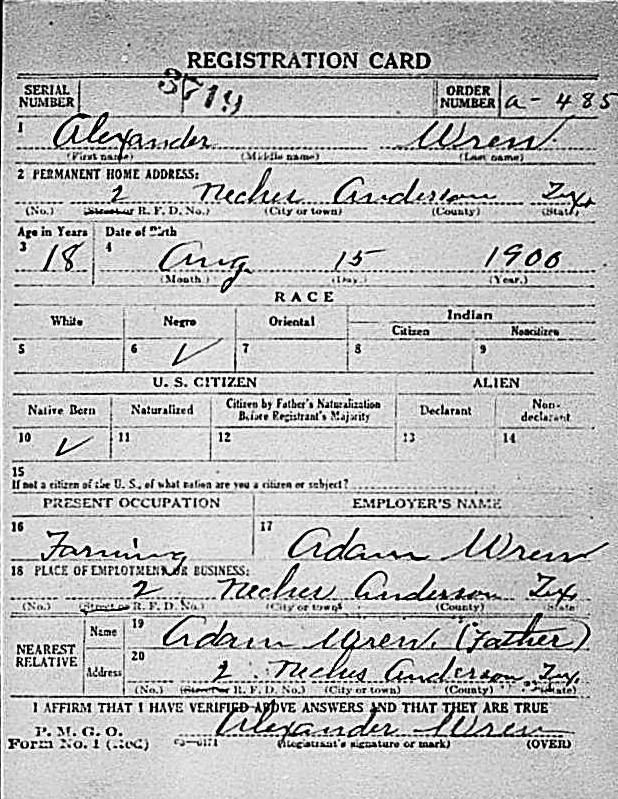 REGISTRATION CARD
SERIAL NUMBER 3719 ORDER NUMBER a-485
1 Alexander Wren
(First name) (Middle name) (Last name)
2 PERMANENT HOME ADDRESS:
2 Neches Anderson Tex
(No.) (Street or R. F. D. No.) (City or town) (County) (State)
Age in Years Date of Birth
3 18 4 Aug 15 1900
(Month.) (Day.) (Year.)
RACE
White Negro Oriental Indian
Citizen Noncitizen
5 6 ✓ 7 8 9
U. S. CITIZEN ALIEN
Native Born Naturalized Citizen by Father's Naturalization Before Registrant's Majority Declarant Non-declarant
10 ✓ 11 12 13 14
15
If not a citizen of the U. S., of what nation are you a citizen or subject?
PRESENT OCCUPATION EMPLOYER'S NAME
16 Farming 17 Adam Wren
18 PLACE OF EMPLOYMENT OR BUSINESS:
2 Neches Anderson Tex
(No.) (Street or R. F. D. No.) (City or town) (County) State
NEAREST RELATIVE Name 19 Adam Wren. (Father)
Address 20 2 Neches Anderson Tex.
(No.) (Street or R. F. D. No.) (City or town) (County) (State)
I AFFIRM THAT I HAVE VERIFIED ABOVE ANSWERS AND THAT THEY ARE TRUE
P. M. G. O.
Form No. 1 (Red) Alexander Wren
(Registrant's signature or mark) (OVER)